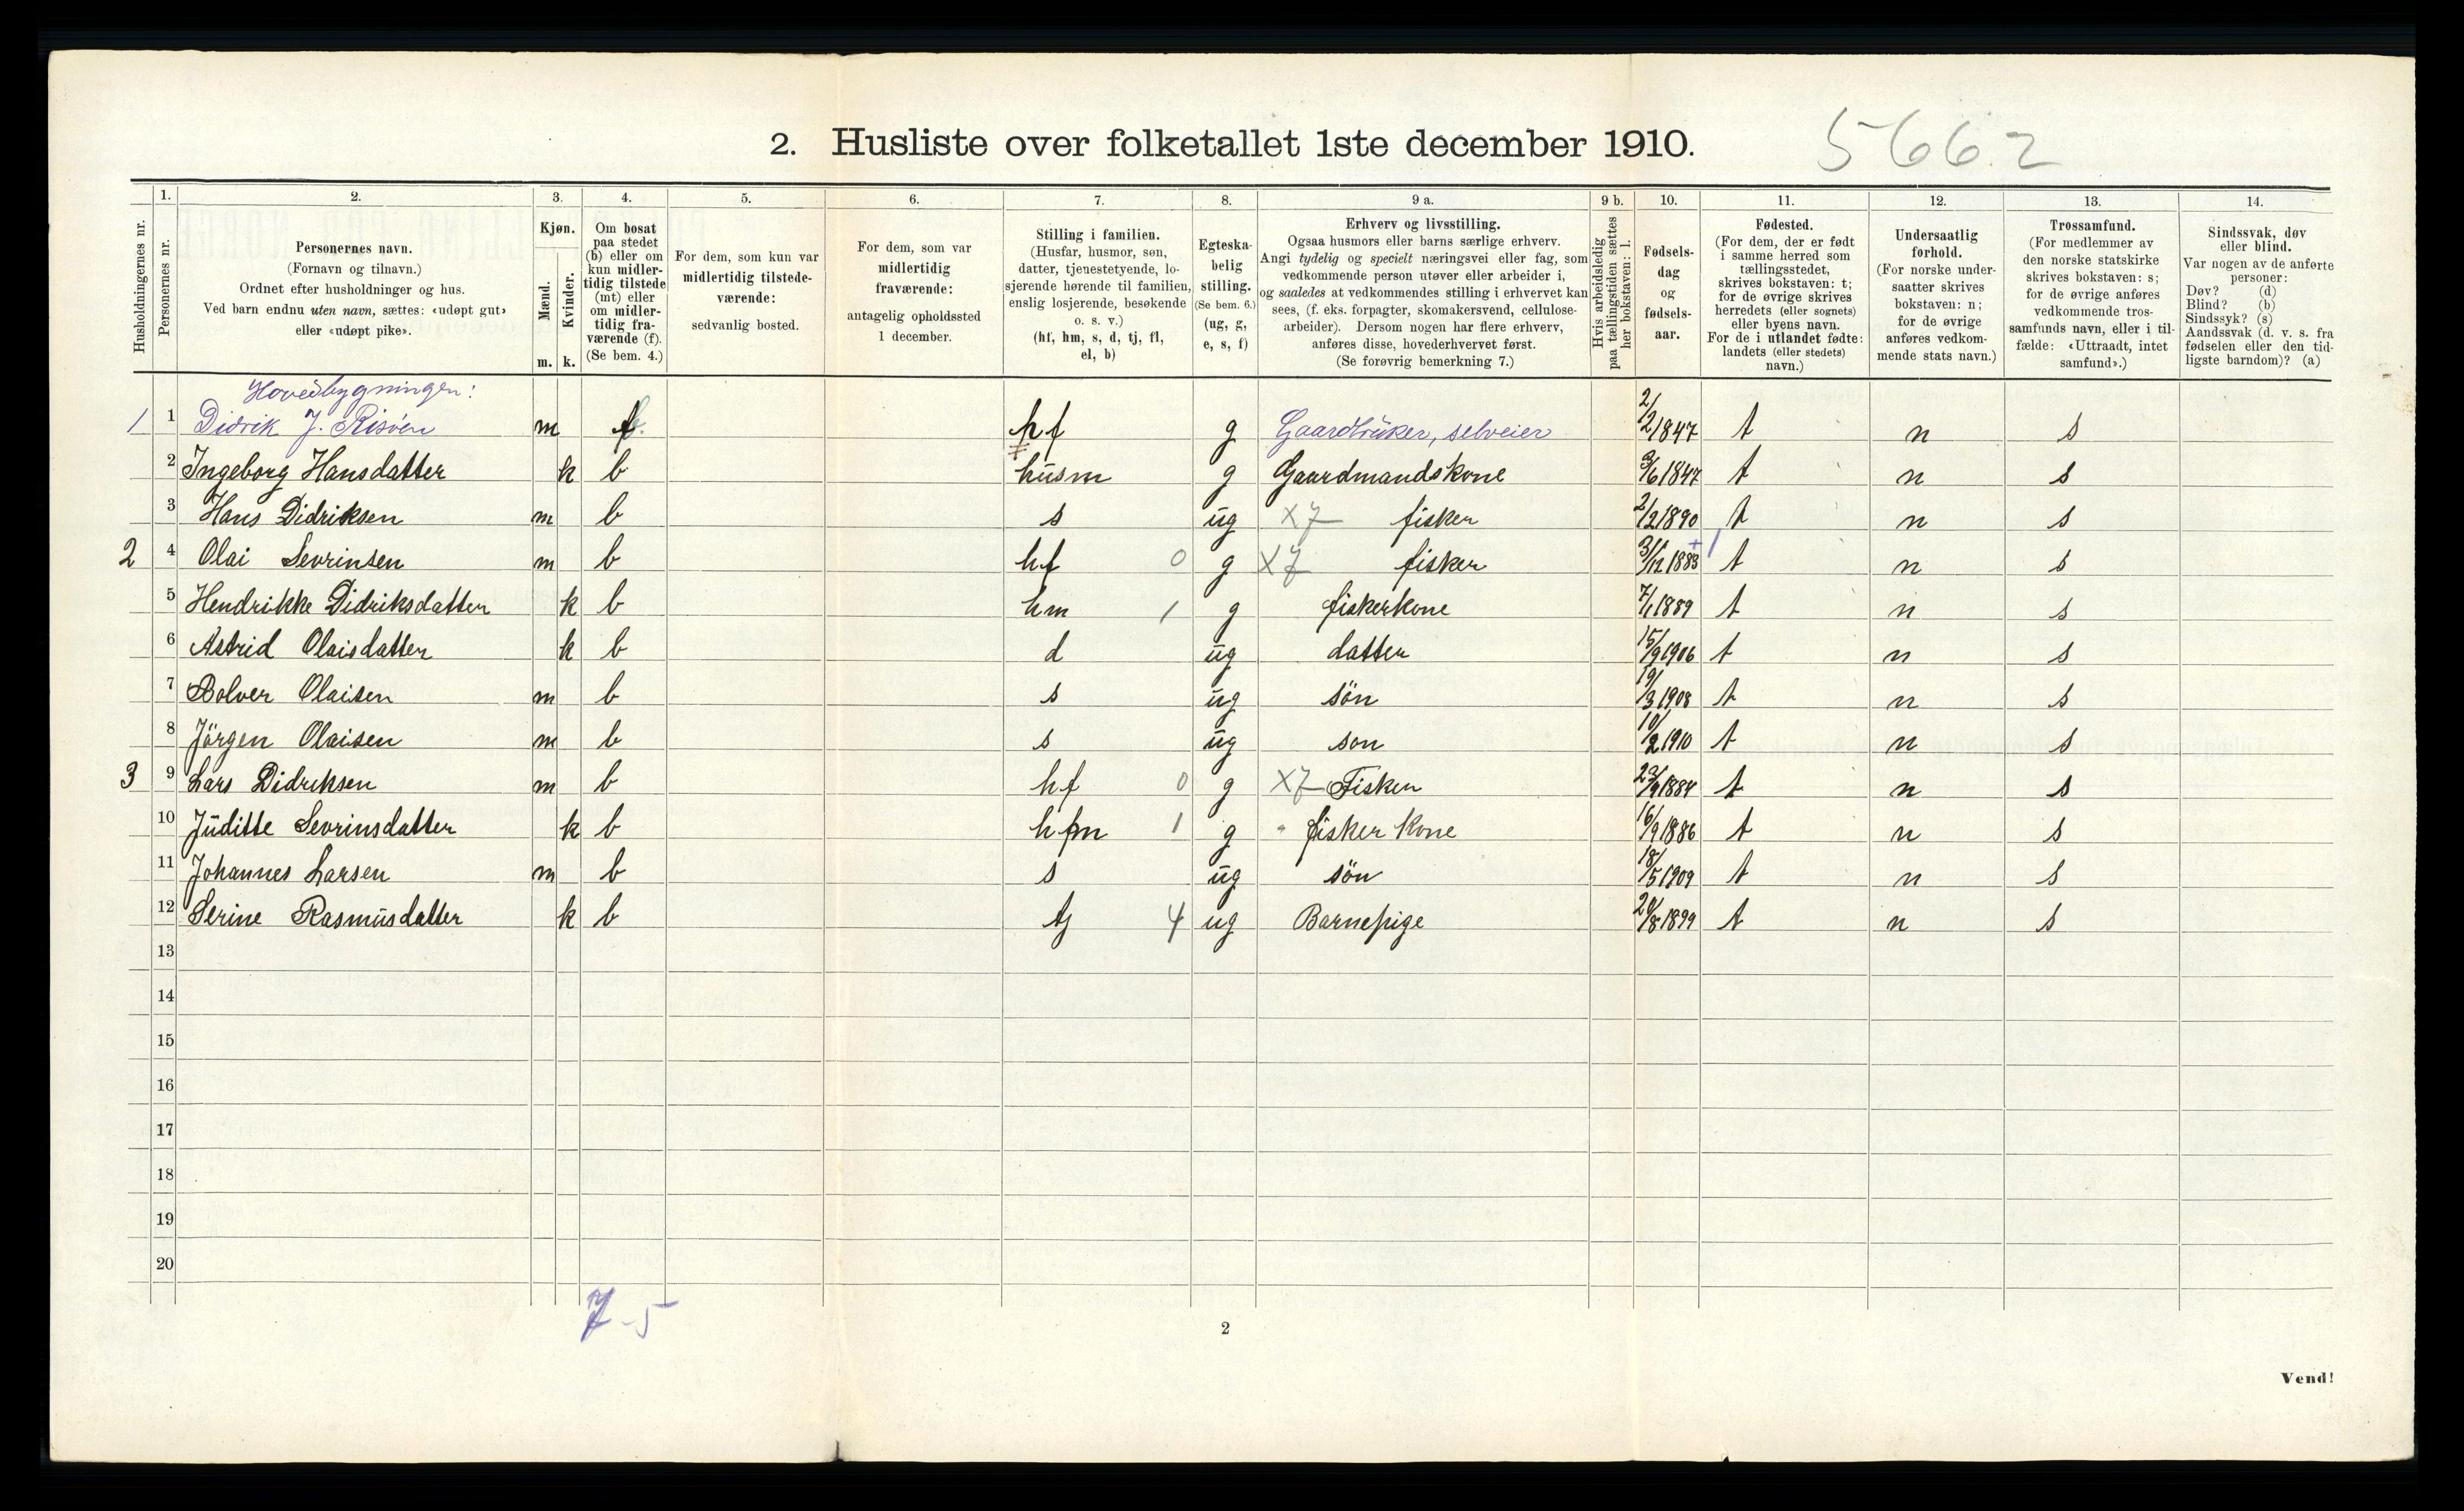 2. Husliste over folketallet 1ste december 1910.
5662
Husholdningernes nr.
1. Personernes nr.
2. Personernes navn.
(Fornavn og tilnavn.)
Ordnet efter husholdninger og hus.
Ved barn endnu uten navn, sættes: «udøpt gut»
eller «udøpt pike».
3. Kjøn.
Mænd. m.
Kvinder. k.
4. Om bosat
paa stedet
(b) eller om
kun midler-
tidig tilstede
(mt) eller
om midler-
tidig fra-
værende (f).
(Se bem. 4.)
5. For dem, som kun var
midlertidig tilstede-
værende:
sedvanlig bosted.
6. For dem, som var
midlertidig
fraværende:
antagelig opholdssted
1 december.
7. Stilling i familien.
(Husfar, husmor, søn,
datter, tjenestetyende, lo-
sjerende hørende til familien,
enslig losjerende, besøkende
o. s. v.)
(hf, hm, s, d, tj, fl,
el, b)
8. Egteska-
belig
stilling.
(Se bem. 6.)
(ug, g,
e, s, f)
9 a. Erhverv og livsstilling.
Ogsaa husmors eller barns særlige erhverv.
Angi tydelig og specielt næringsvei eller fag, som
vedkommende person utøver eller arbeider i,
og saaledes at vedkommendes stilling i erhvervet kan
sees, (f. eks. forpagter, skomakersvend, cellulose-
arbeider). Dersom nogen har flere erhverv,
anføres disse, hovederhvervet først.
(Se forøvrig bemerkning 7.)
9 b. Hvis arbeidsledig
paa tællingstiden sættes
her bokstaven: l.
10. Fødsels-
dag
og
fødsels-
aar.
11. Fødested.
(For dem, der er født
i samme herred som
tællingsstedet,
skrives bokstaven: t;
for de øvrige skrives
herredets (eller sognets)
eller byens navn.
For de i utlandet fødte:
landets (eller stedets)
navn.)
12. Undersaatlig
forhold.
(For norske under-
saatter skrives
bokstaven: n;
for de øvrige
anføres vedkom-
mende stats navn.)
13. Trossamfund.
(For medlemmer av
den norske statskirke
skrives bokstaven: s;
for de øvrige anføres
vedkommende tros-
samfunds navn, eller i til-
fælde: «Uttraadt, intet
samfund».)
14. Sindssvak, døv
eller blind.
Var nogen av de anførte
personer:
Døv? (d)
Blind? (b)
Sindssyk? (s)
Aandssvak (d. v. s. fra
fødselen eller den tid-
ligste barndom)? (a)
Hovedbygningen:
1 1 Didrik J. Risöen m b. hf g Gaardbrüker, selveier 2/2 1847 t n s
2 Ingeborg Hansdatter k b husm g Gaardmandskone 3/6 1847 t n s
3 Hans Didriksen m b s üg X7 fisker 2/2 1890 t n s
2 4 Olai Sevrinsen m b hf 0 g X7 fisker 31/12 1883 t n s
5 Hendrikke Didriksdatter k b hm 1 g fiskerkone 7/1 1889 t n s
6 Astrid Olaisdatter k b d üg datter 15/9 1906 t n s
7 Bolver Olaisen m b s üg sön 19/3 1908 t n s
8 Jörgen Olaisen m b s üg son 10/2 1910 t n s
3 9 Lars Didriksen m b hf 0 g X7 Fisker 23/9 1884 t n s
10 Jüditte Sevrinsdatter k b hm 1 g fisker kone 16/9 1886 t n s
11 Johannes Larsen m b s üg sön 18/5 1909 t n s
12 Serine Rasmüsdatter k b tj 4 ug Barnepige 20/8 1899 t n s
13
14
15
16
17
18
19
20
7-5
2
Vend!